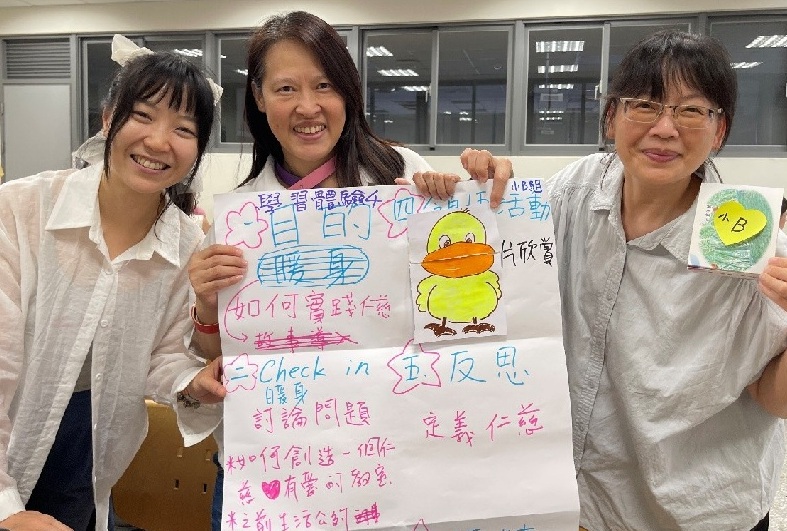 學習體驗4
小B組
一 目的
暖身
如何實踐仁慈
二 Check in
暖身
討論問題
*如何創造一個仁
慈❤有愛的教室
*之前生活公約
四
活動
片欣賞
五 反思
定義仁慈
小B